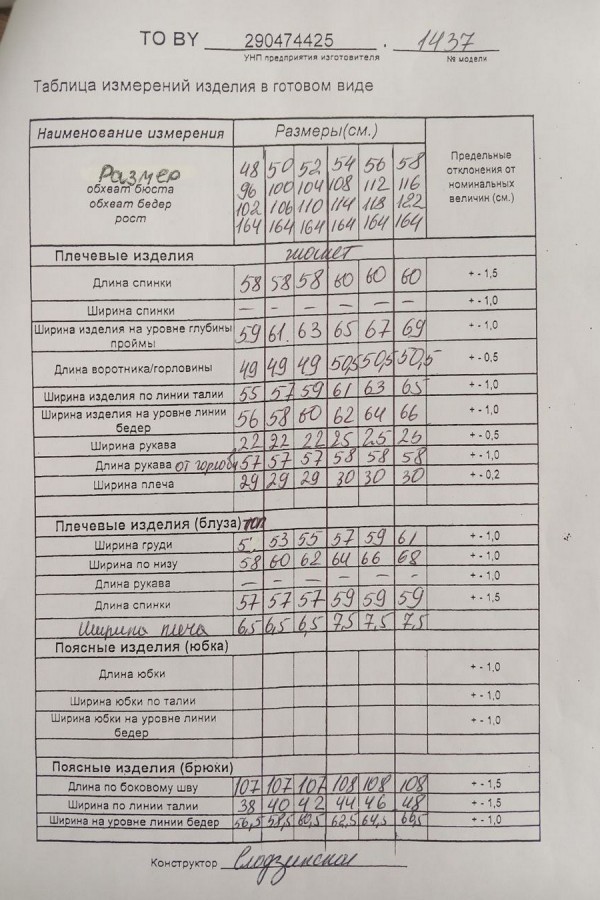 TO BY 290474425 . 1437
УНП предприятия изготовителя № модели
Таблица измерений изделия в готовом виде
Наименование измерения Размеры(см.) Предельные отклонения от номинальных величин (см.)
Размер 48 50 52 54 56 58
обхват бюста 96 100 104 108 112 116
обхват бедер 102 106 110 114 118 122
рост 164 164 164 164 164 164
Плечевые изделия жакет
Длина спинки 58 58 58 60 60 60 + - 1,5
Ширина спинки – – – – – – + - 1,0
Ширина изделия на уровне глубины проймы 59 61. 63 65 67 69 + - 1,0
Длина воротника/горловины 49 49 49 50,5 50,5 50,5 + - 0,5
Ширина изделия по линии талии 55 57 59 61 63 65 + - 1,0
Ширина изделия на уровне линии бедер 56 58 60 62 64 66 + - 1,0
Ширина рукава 22 22 22 25 25 25 + - 0,5
Длина рукава от горлов 57 57 57 58 58 58 + - 1,0
Ширина плеча 29 29 29 30 30 30 + - 0,2
Плечевые изделия (блуза) топ
Ширина груди 53 55 57 59 61 + - 1,0
Ширина по низу 58 60 62 64 66 68 + - 1,0
Длина рукава – – – – – – + - 1,0
Длина спинки 57 57 57 59 59 59 + - 1,5
Ширина плеча 6,5 6,5 6,5 7,5 7,5 7,5
Поясные изделия (юбка)
Длина юбки + - 1,0
Ширина юбки по талии + - 1,0
Ширина юбки на уровне линии бедер + - 1,0
Поясные изделия (брюки)
Длина по боковому шву 107 107 107 108 108 108 + - 1,5
Ширина по линии талии 38 40 42 44 46 48 + - 1,5
Ширина на уровне линии бедер 56,5 58,5 60,5 62,5 64,5 66,5 + - 1,0
Конструктор